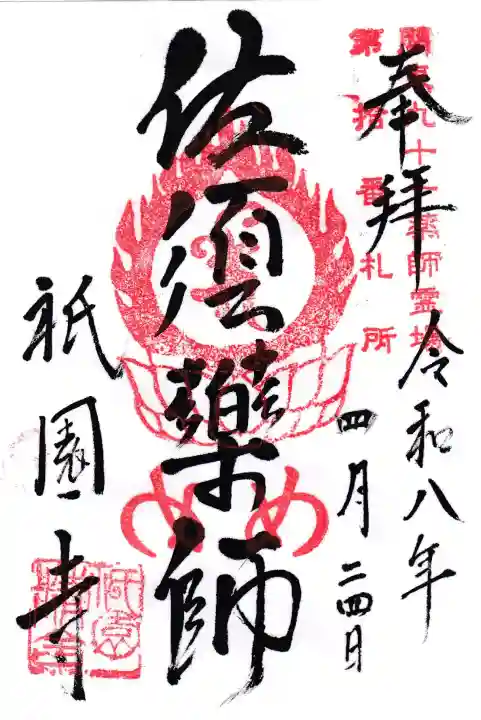 関東九十一薬師霊場
第拾番札所
奉拝
令和八年
四月二四日
佐須藥師
め め
祇園寺